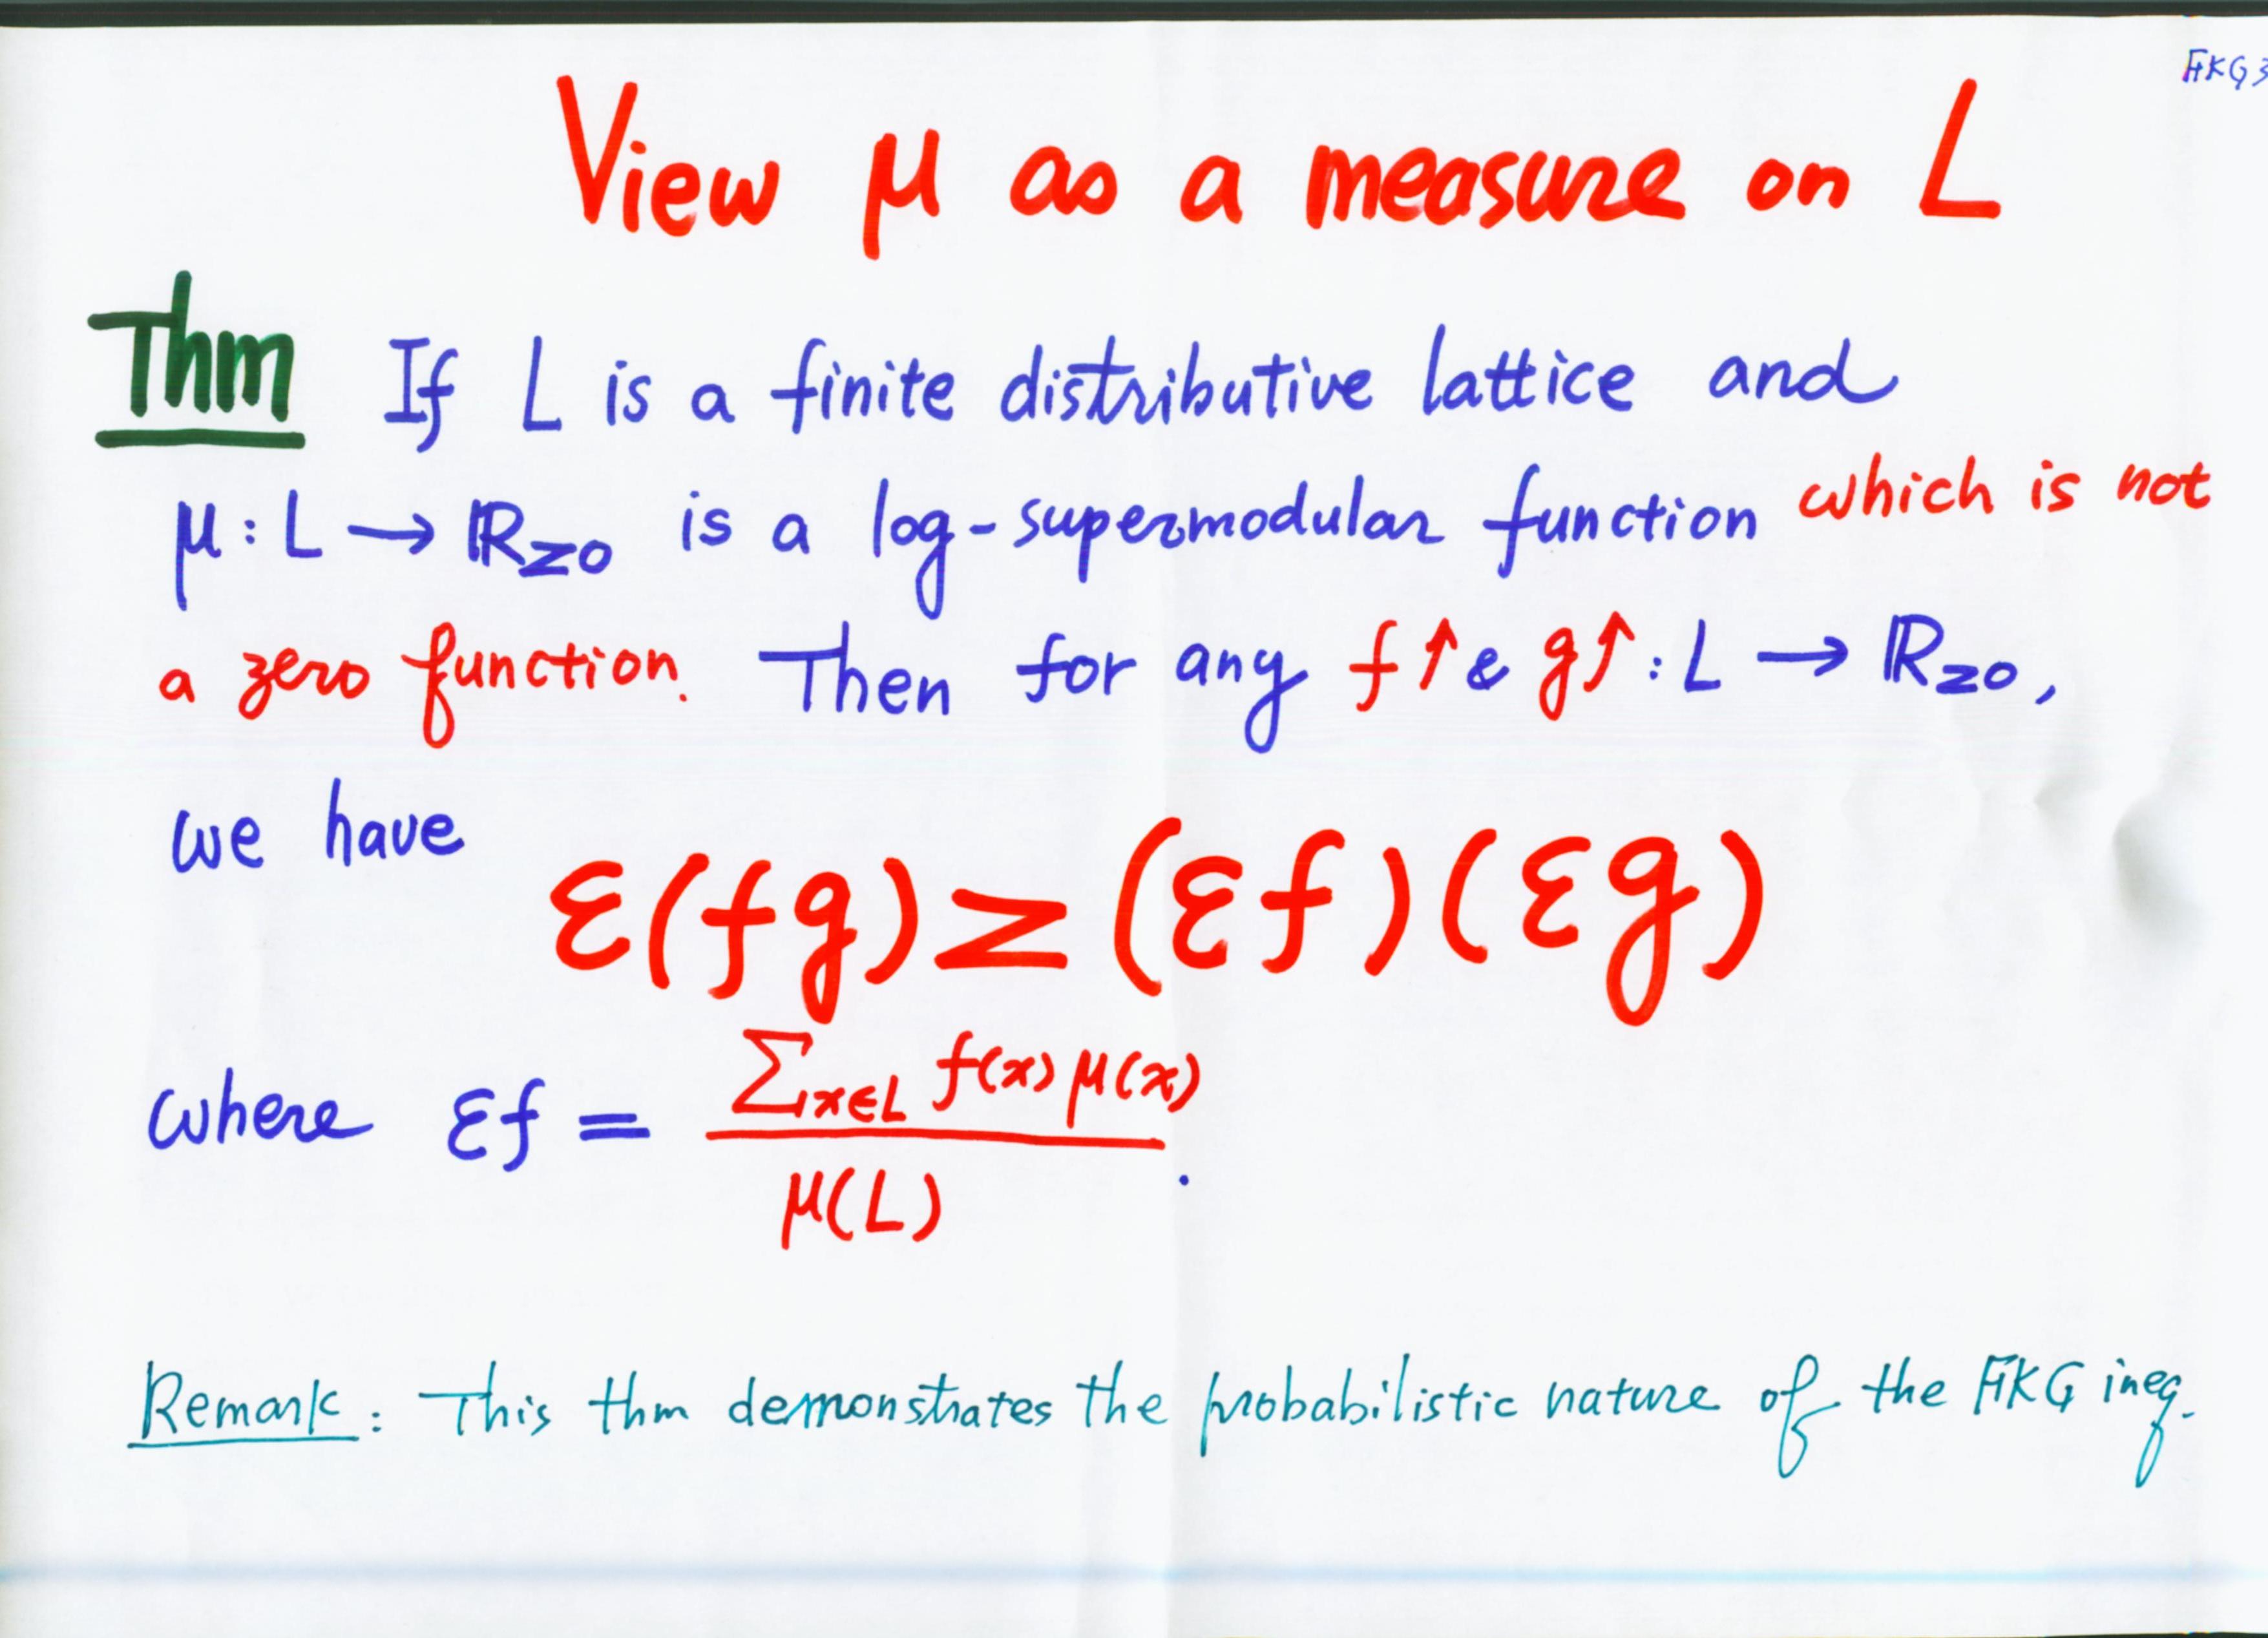 FKG3
View μ as a measure on L
Thm If L is a finite distributive lattice and
μ : L → ℝ≥0 is a log-supermodular function which is not
a zero function. Then for any f↑ & g↑ : L → ℝ≥0,
we have
ℰ(fg) ≥ (ℰf)(ℰg)
where ℰf = ∑x∈L f(x) μ(x) / μ(L) .
Remark : This thm demonstrates the probabilistic nature of the FKG ineq.